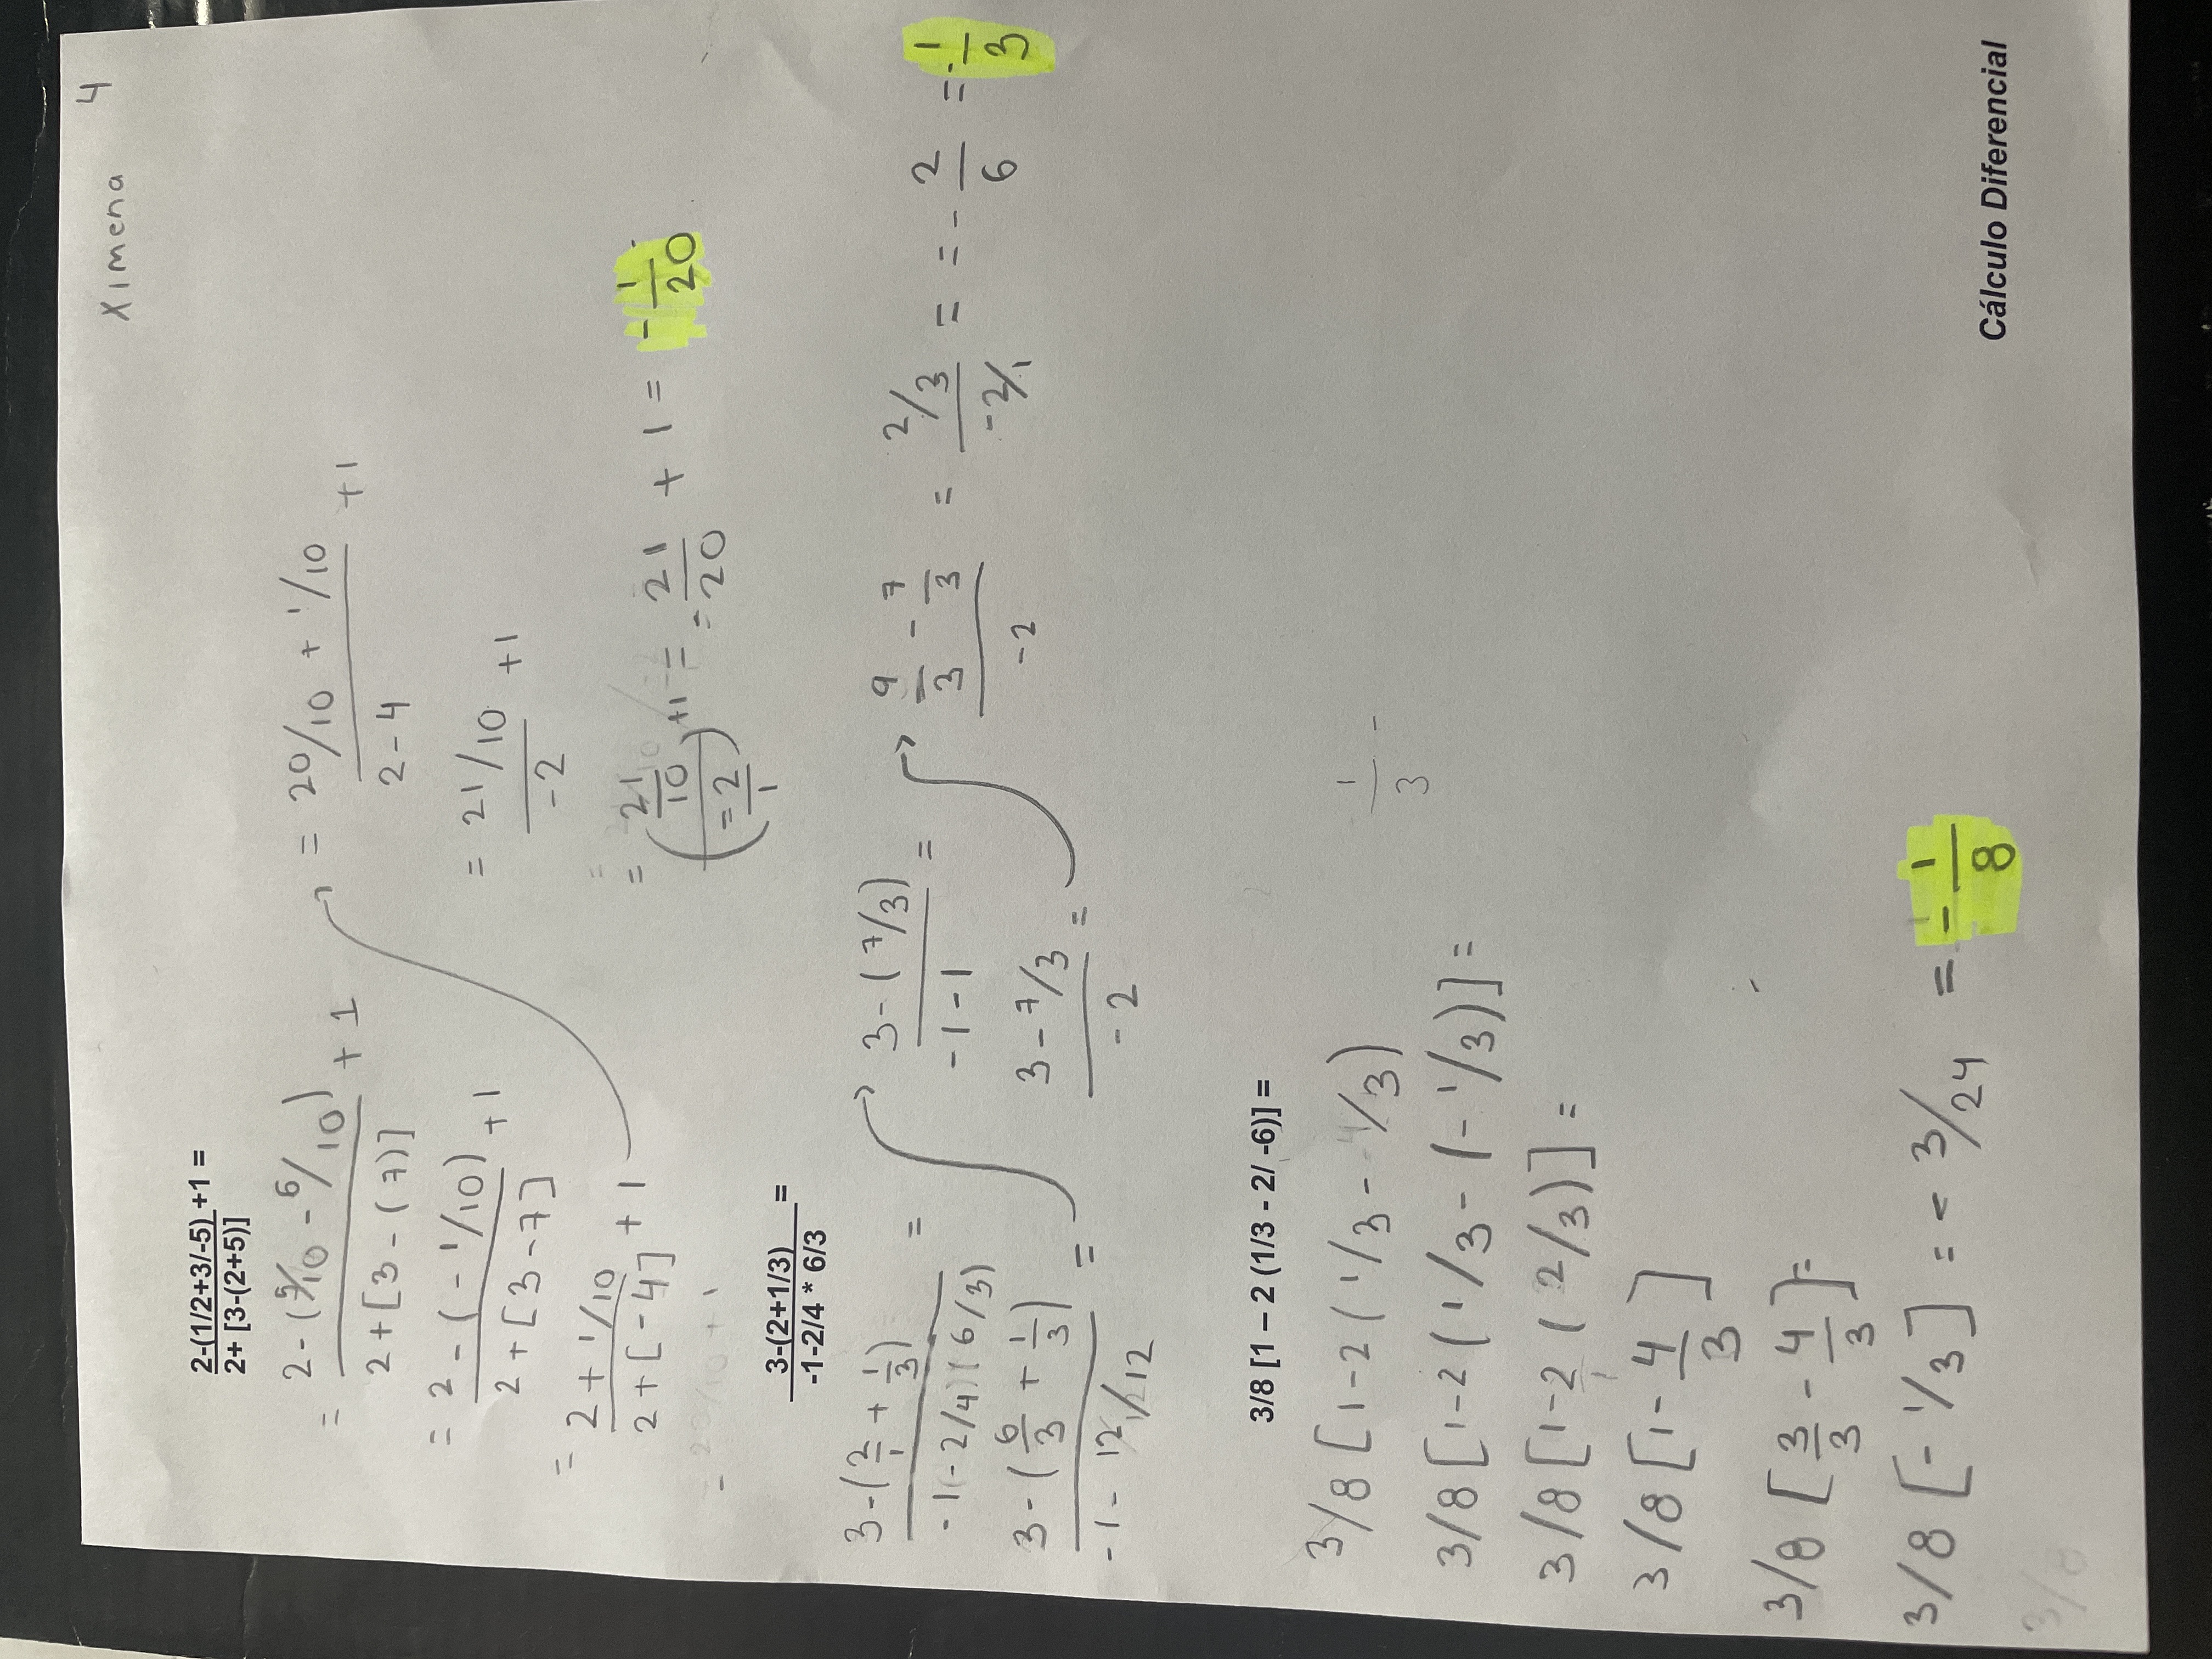 Ximena 4
2-(1/2+3/-5) +1 =
2+ [3-(2+5)]
= 2 - (5/10 - 6/10) + 1
2 + [3 - (7)]
= 2 - (- 1/10) + 1
2 + [3 - 7]
= 2 + 1/10 + 1
2 + [- 4]
= 20/10 + 1/10 + 1
2 - 4
= 21/10 + 1
-2
= (21/10 / = 2/1) + 1 = = 21/20 + 1 = - 1/20
3-(2+1/3) =
-1-2/4 * 6/3
3 - (2/1 + 1/3) =
- 1(- 2/4)(6/3)
3 - (6/3 + 1/3) =
- 1 - 12/12
3 - (7/3) =
- 1 - 1
3 - 7/3 =
- 2
9/3 - 7/3 = 2/3 = = - 2/6 = - 1/3
- 2 -2/1
3/8 [1 – 2 (1/3 - 2/ -6)] =
3/8 [1 - 2 (1/3 - 1/3)
1/3 -
3/8 [1 - 2 (1/3 - (- 1/3)] =
3/8 [1 - 2 ( 2/3)] =
3/8 [1 - 4/3]
3/8 [3/3 - 4/3] =
3/8 [- 1/3] = - 3/24 = - 1/8
Cálculo Diferencial